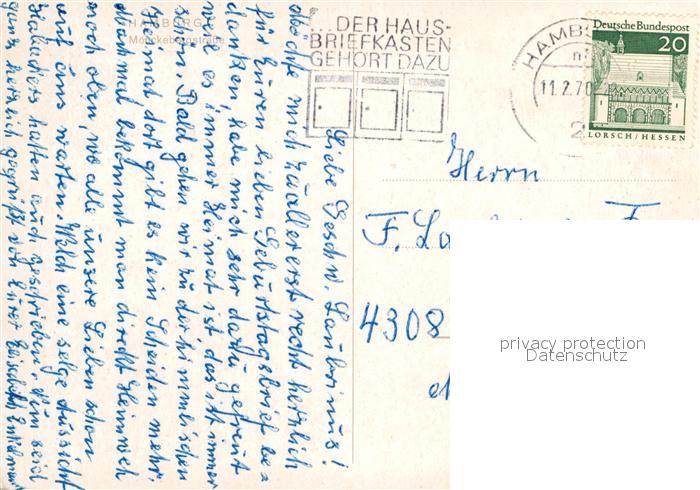 HAMBURG
Mönckebergstraße
...DER HAUS-
BRIEFKASTEN
GEHÖRT DAZU
HAMBURG
11.2.70
Deutsche Bundespost
20
LORSCH/HESSEN
Liebe Geschw. Laubrinus!
Möchte mich zuallererst recht herzlich
für Euren lieben Geburtstagsbrief be-
danken, habe mich sehr dazu gefreut
weil es immer Heimat ist das ist immer
schön. Bald gehen wir zu der himmlischen
Heimat dort gibt es kein Scheiden mehr.
Manchmal bekommt man direkt Heimweh
nach oben, wo alle unsere Lieben schon
auf uns warten. Welch eine selige Aussicht
haben auch geschrieben. Nun seid
ganz herzlich gegrüßt von Eurer Elisabeth
Herrn
F.
4308
privacy protection
Datenschutz